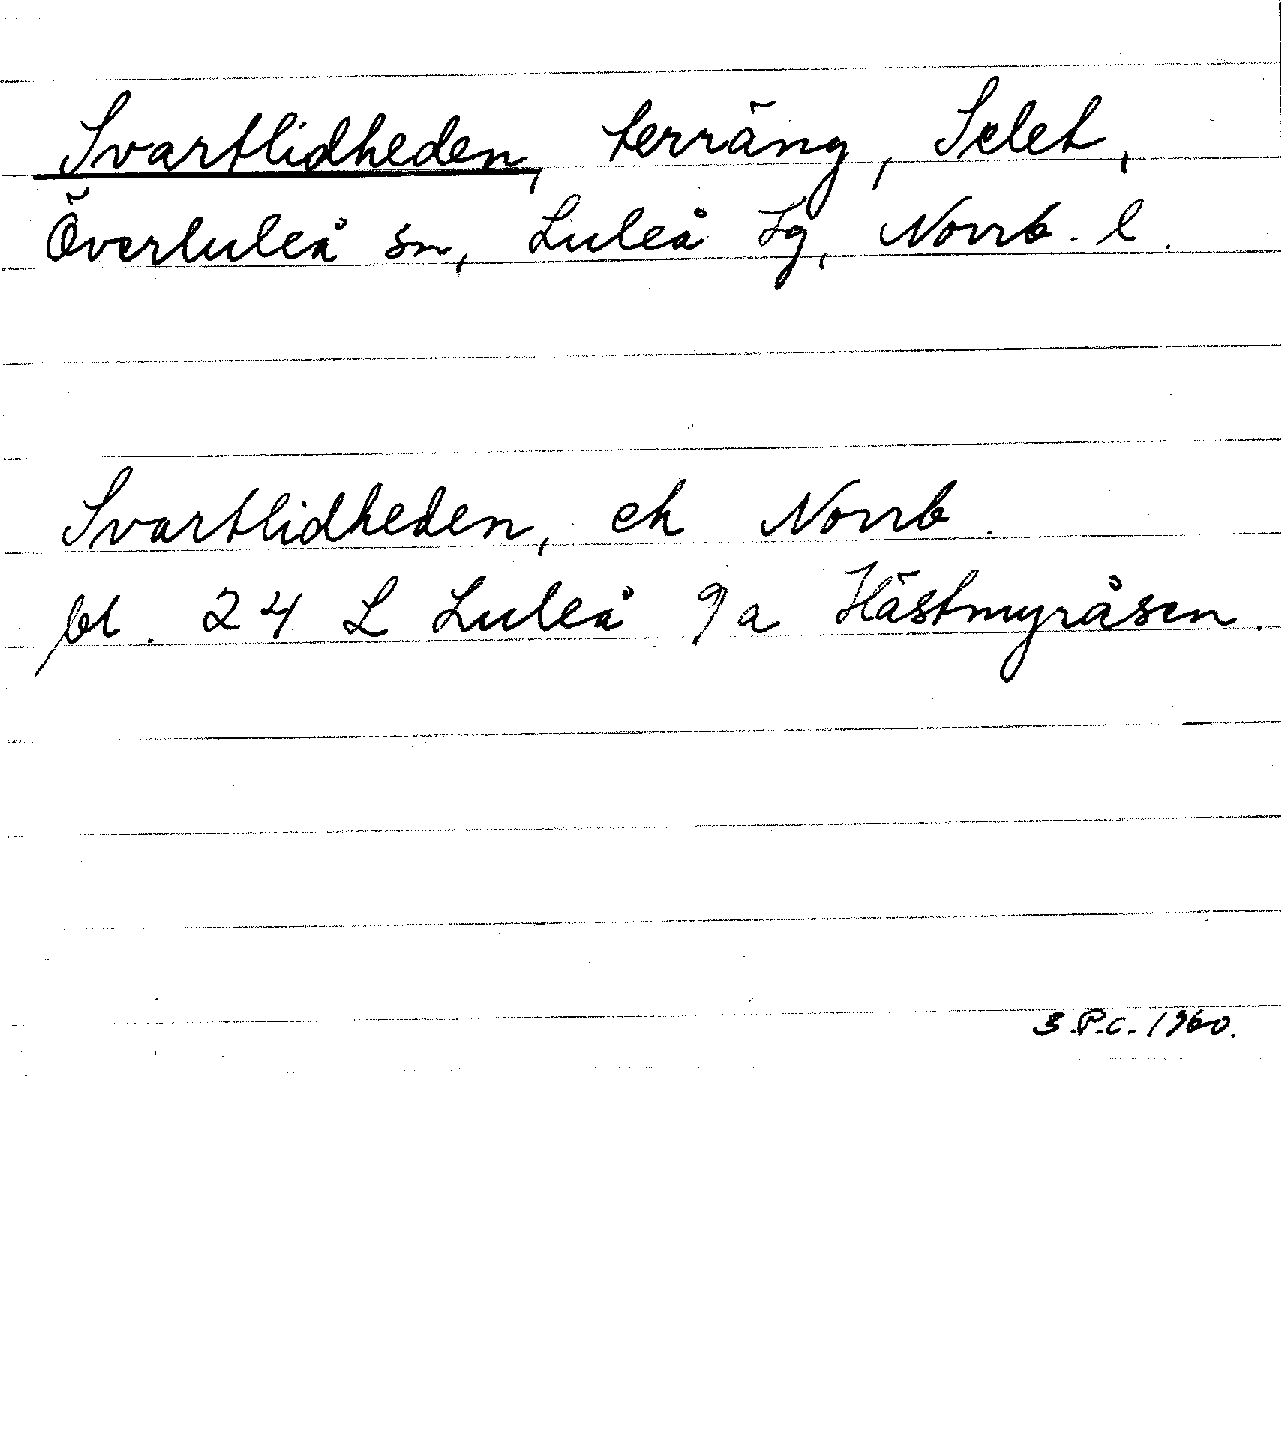 Svartlidheden, terräng, Selet,
Överluleå sn, Luleå tg, Norrb. l.
Svartlidheden, ek Norrb.
bl. 24 L Luleå 9a Hästmyråsen.
S.P.C. 1960.